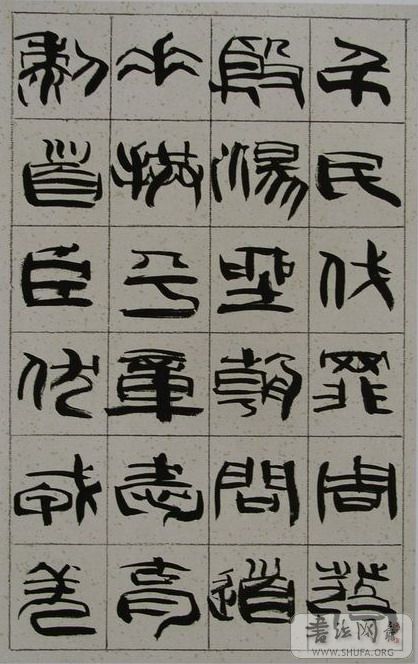 弔民伐罪周發
殷湯坐朝問道
垂拱平章愛育
黎首臣伏戎羌
WWW.SHUFA.ORG